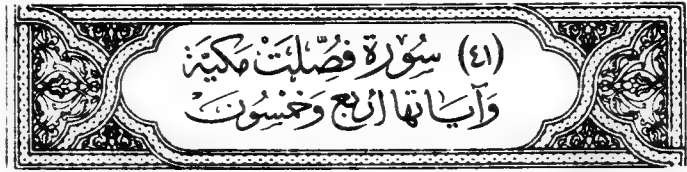 (٤١) سُورَة فُصِّلَتْ مَكِيَّة
وَآيَاتها اربَع وَخَمْسُونَ